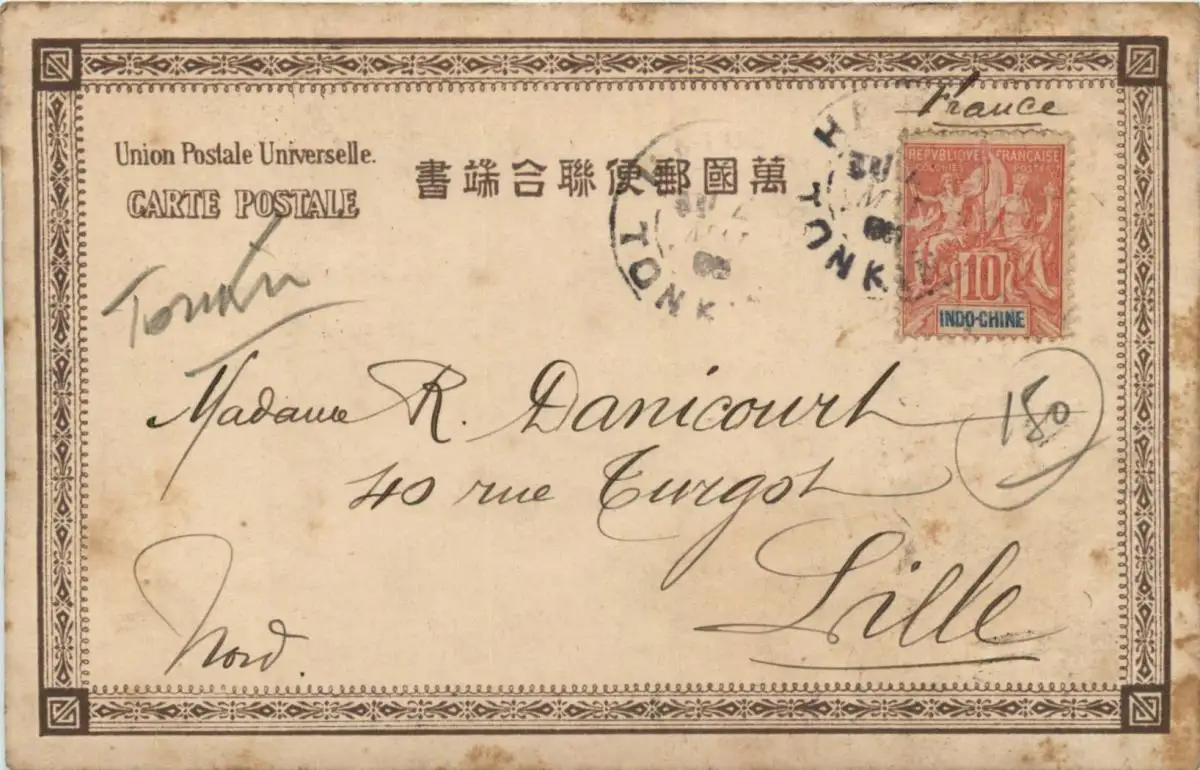 France
Union Postale Universelle.
CARTE POSTALE
萬國郵便聯合端書
TONK
TONK
REPVBLIQVE FRANÇAISE
COLONIES POSTES
10
INDO-CHINE
Tonkin
Madame R. Danicourt
150
40 rue Turgot
Lille
Nord.